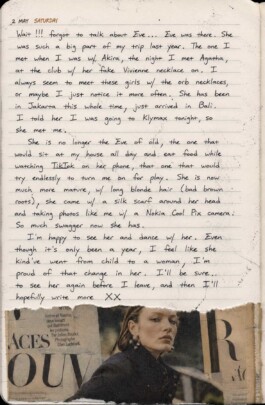 2 MAY SATURDAY
Wait !!! forgot to talk about Eve... Eve was there. She
was such a big part of my trip last year. The one I
met when I was w/ Akira, the night I met Agatha,
at the club w/ her fake Vivienne necklace on. I
always seem to meet these girls w/ the orb necklaces,
or maybe I just notice it more often. She has been
in Jakarta this whole time, just arrived in Bali.
I told her I was going to Klymax tonight, so
she met me.
She is no longer the Eve of old, the one that
would sit at my house all day and eat food while
watching TikTok on her phone, the one that would
try endlessly to turn me on for play. She is now
much more mature, w/ long blonde hair (bad brown
roots), she came w/ a silk scarf around her head
and taking photos like me w/ a Nokia Cool Pix camera.
So much swagger now she has.
I'm happy to see her and dance w/ her. Even
though it's only been a year, I feel like she
kind've went from child to a woman, I'm
proud of that change in her. I'll be sure...
to see her again before I leave, and then I'll
hopefully write more XX
ACES
OUV
R